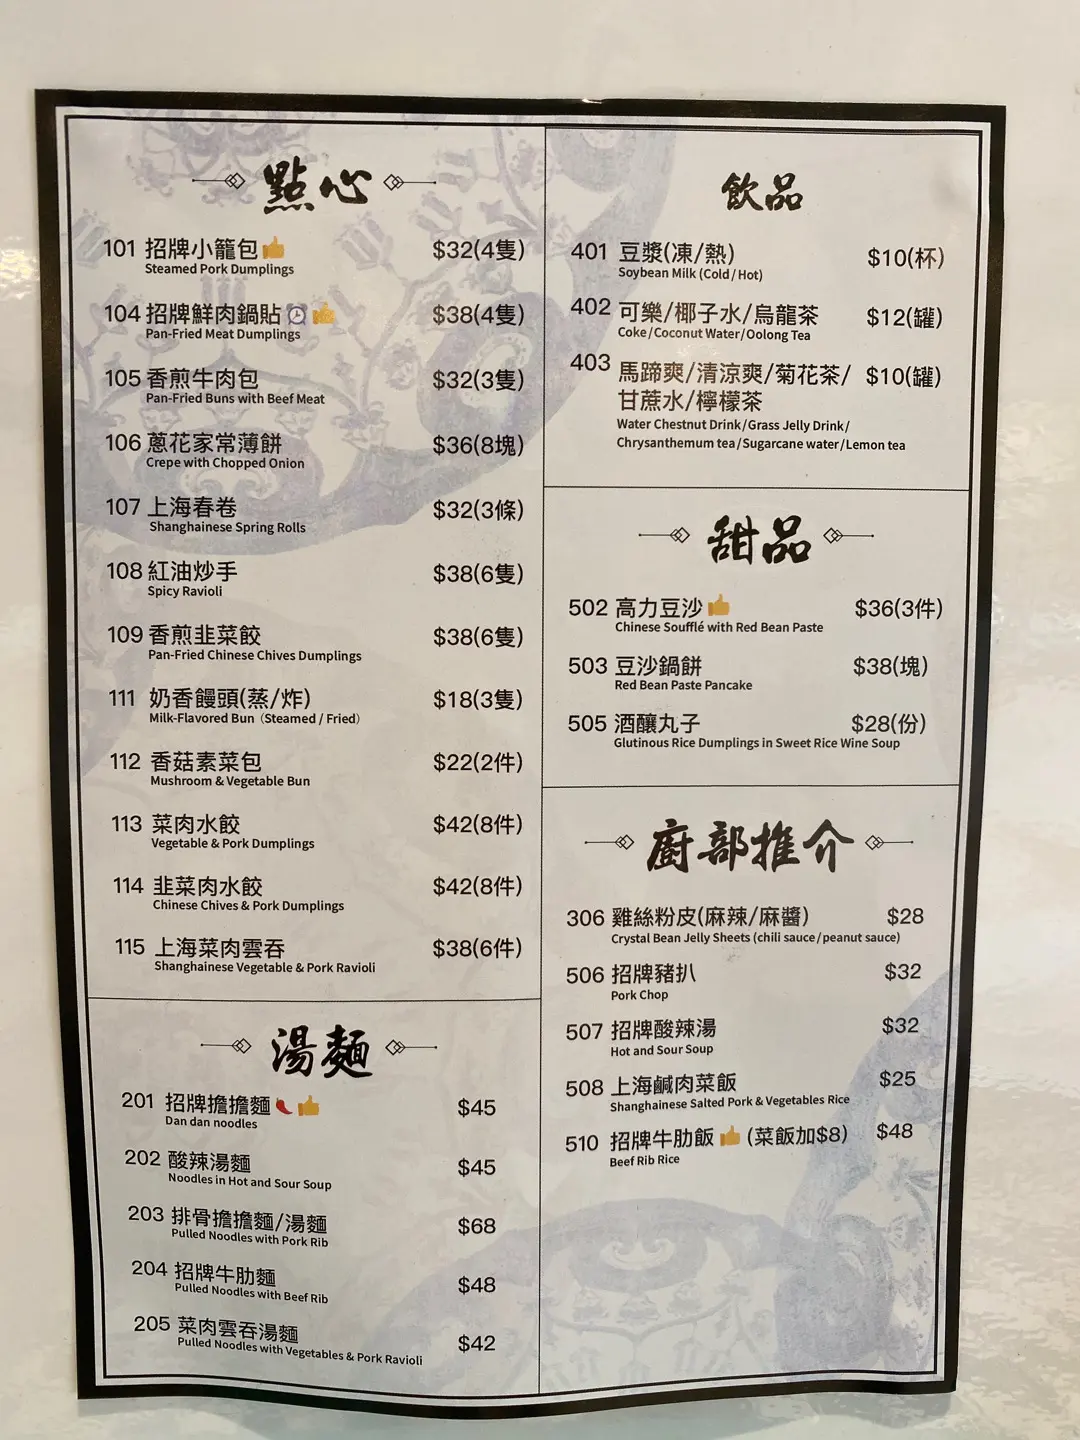 點心
101 招牌小籠包 $32(4隻)
Steamed Pork Dumplings
104 招牌鮮肉鍋貼 $38(4隻)
Pan-Fried Meat Dumplings
105 香煎牛肉包 $32(3隻)
Pan-Fried Buns with Beef Meat
106 蔥花家常薄餅 $36(8塊)
Crepe with Chopped Onion
107 上海春卷 $32(3條)
Shanghainese Spring Rolls
108 紅油炒手 $38(6隻)
Spicy Ravioli
109 香煎韭菜餃 $38(6隻)
Pan-Fried Chinese Chives Dumplings
111 奶香饅頭(蒸/炸) $18(3隻)
Milk-Flavored Bun (Steamed / Fried)
112 香菇素菜包 $22(2件)
Mushroom & Vegetable Bun
113 菜肉水餃 $42(8件)
Vegetable & Pork Dumplings
114 韭菜肉水餃 $42(8件)
Chinese Chives & Pork Dumplings
115 上海菜肉雲吞 $38(6件)
Shanghainese Vegetable & Pork Ravioli
湯麵
201 招牌擔擔麵 $45
Dan dan noodles
202 酸辣湯麵 $45
Noodles in Hot and Sour Soup
203 排骨擔擔麵/湯麵 $68
Pulled Noodles with Pork Rib
204 招牌牛肋麵 $48
Pulled Noodles with Beef Rib
205 菜肉雲吞湯麵 $42
Pulled Noodles with Vegetables & Pork Ravioli
飲品
401 豆漿(凍/熱) $10(杯)
Soybean Milk (Cold/Hot)
402 可樂/椰子水/烏龍茶 $12(罐)
Coke/Coconut Water/Oolong Tea
403 馬蹄爽/清涼爽/菊花茶/ $10(罐)
甘蔗水/檸檬茶
Water Chestnut Drink/Grass Jelly Drink/
Chrysanthemum tea/Sugarcane water/Lemon tea
甜品
502 高力豆沙 $36(3件)
Chinese Soufflé with Red Bean Paste
503 豆沙鍋餅 $38(塊)
Red Bean Paste Pancake
505 酒釀丸子 $28(份)
Glutinous Rice Dumplings in Sweet Rice Wine Soup
廚部推介
306 雞絲粉皮(麻辣/麻醬) $28
Crystal Bean Jelly Sheets (chili sauce/peanut sauce)
506 招牌豬扒 $32
Pork Chop
507 招牌酸辣湯 $32
Hot and Sour Soup
508 上海鹹肉菜飯 $25
Shanghainese Salted Pork & Vegetables Rice
510 招牌牛肋飯 (菜飯加$8) $48
Beef Rib Rice